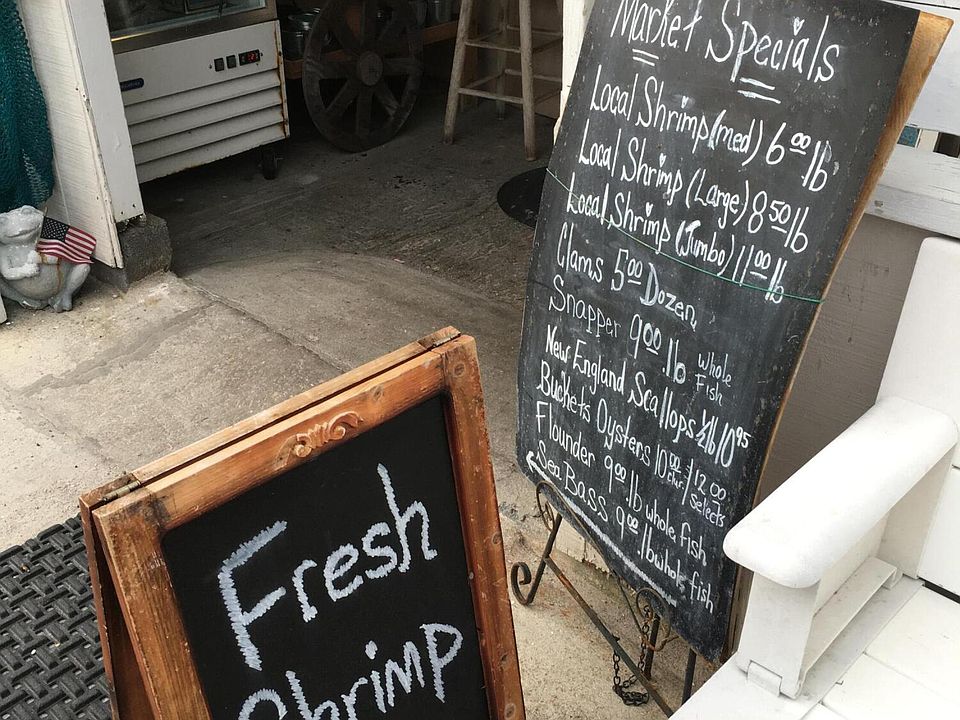 Market Specials
Local Shrimp (med) 6.00 lb
Local Shrimp (Large) 8.50 lb
Local Shrimp (Jumbo) 11.00 lb
Clams 5.00 Dozen
Snapper 9.00 lb whole Fish
New England Scallops ½lb 10.95
Buckets Oysters 10.00 cltr. / 12.00 Selects
Flounder 9.00 lb whole fish
Sea Bass 9.00 lb whole fish
Fresh
Shrimp